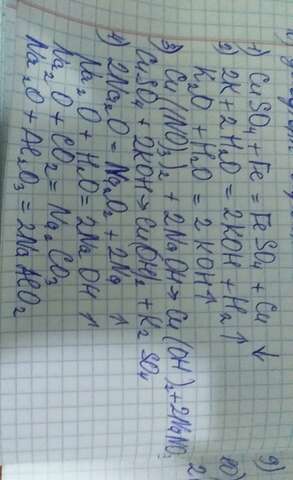 1) CuSO₄ + Fe = FeSO₄ + Cu ↓
2) 2K + 2H₂O = 2KOH + H₂ ↑
K₂O + H₂O = 2KOH ↑
3) Cu(NO₃)₂ + 2NaOH → Cu(OH)₂ + 2NaNO₃
CuSO₄ + 2KOH → Cu(OH)₂ + K₂SO₄
4) 2Na₂O = Na₂O₂ + 2Na ↑
Na₂O + H₂O = 2NaOH ↑
Na₂O + CO₂ = Na₂CO₃
Na₂O + Al₂O₃ = 2NaAlO₂
9)
10)